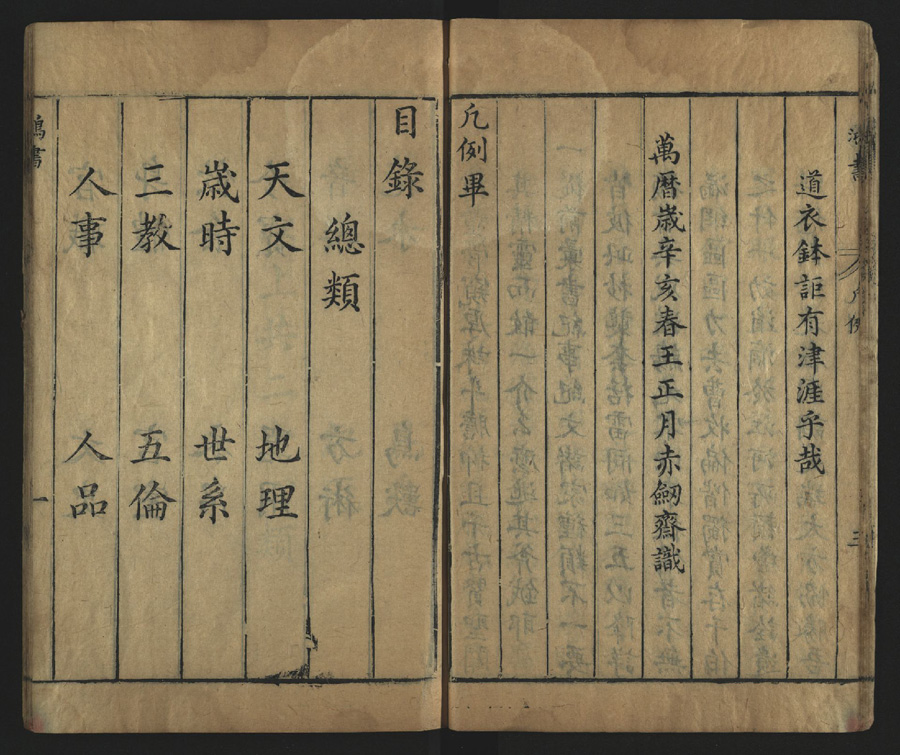 道衣鉢詎有津涯乎哉
萬曆歲辛亥春王正月赤劒齋識
凡例畢
凡例
三
目錄
總類
天文 地理
歲時 世系
三教 五倫
人事 人品
鴻書
一